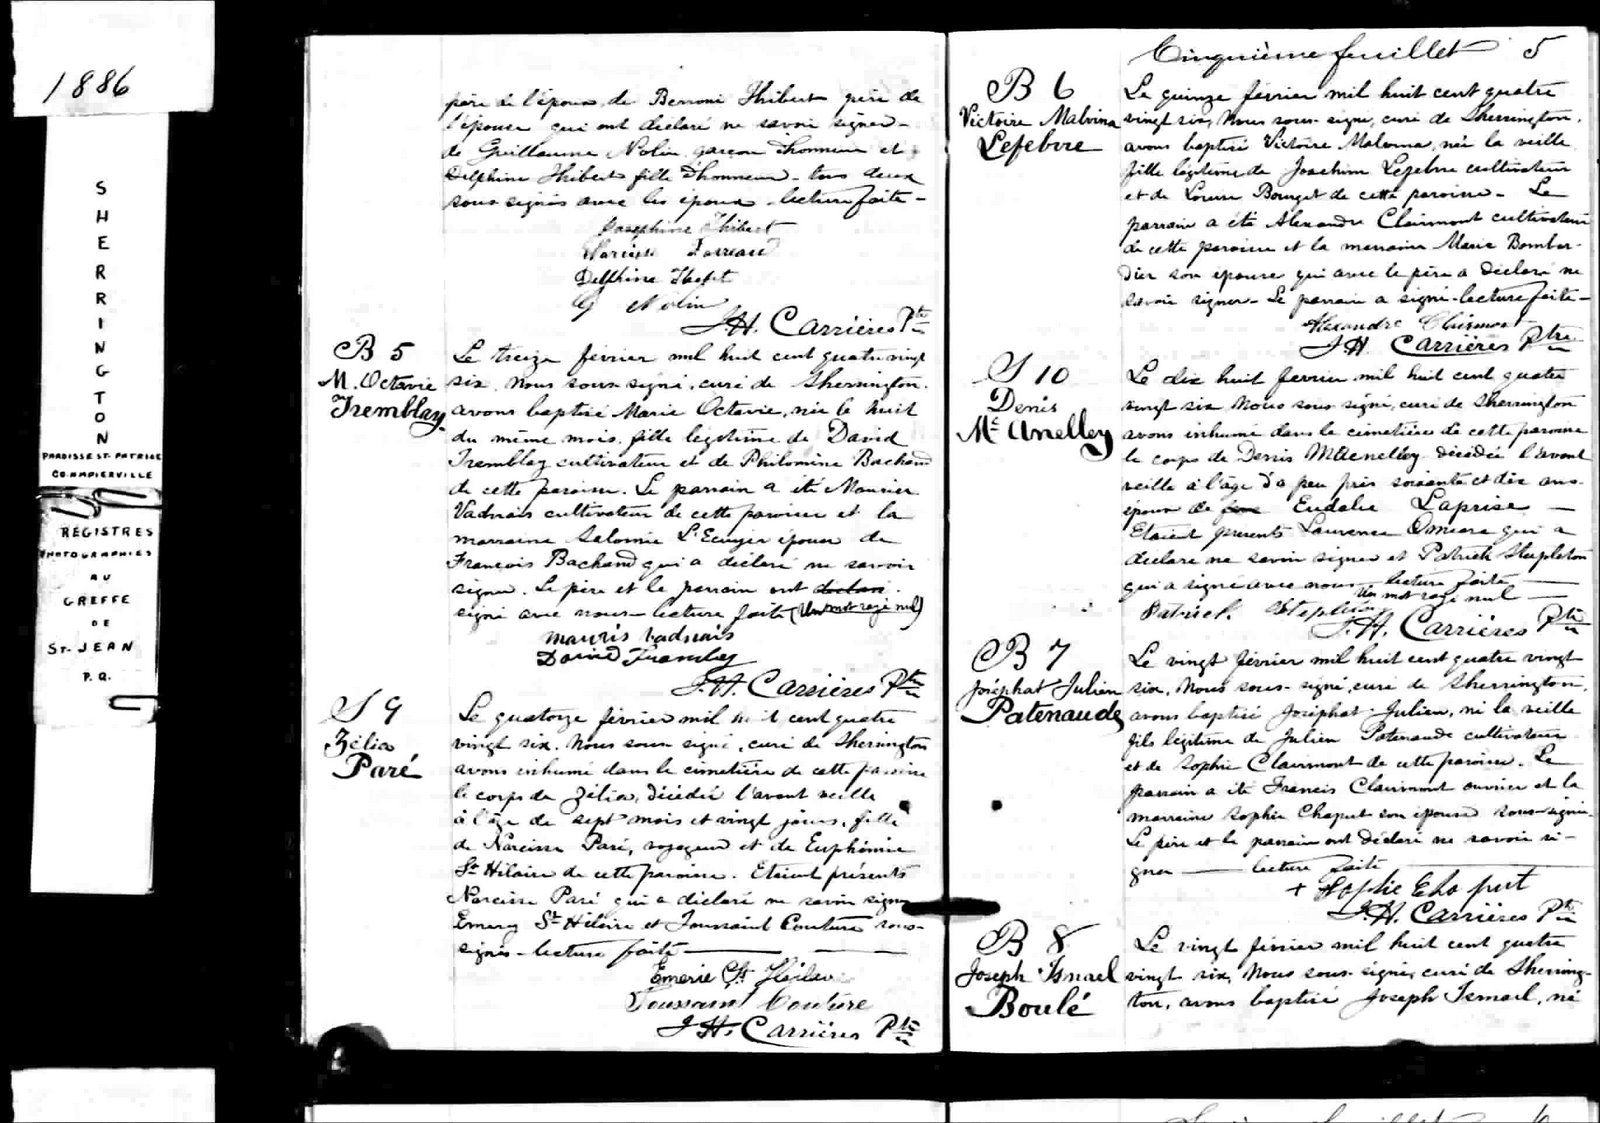 1886
SHERRINGTON
PAROISSE ST. PATRICE
REGISTRES
PHOTOGRAPHIES
AU
GREFFE
DE
ST-JEAN
P.Q.
père de l'époux de Bernoni Thibert père de
l'épouse qui ont déclaré ne savoir signer-
de Guillaume Nolin garçon d'honneur et
Delphine Thibert fille d'honneur - tous deux
sous-signés avec les époux - lecture faite -
Josephine Thibert
Narcisse
Delphine
G Nolin
J.H. Carrières Ptre
B 5
M. Octavie
Tremblay
Le treize février mil huit cent quatre vingt
six, Nous sous-signé, curé de Sherrington.
avons baptisé Marie Octavie, née le huit
du même mois, fille légitime de David
Tremblay cultivateur et de Philomine Bachand
de cette paroisse. Le parrain a été Maurice
Vadnais cultivateur de cette paroisse et la
marraine Salomie L'Ecuyer épouse de
Francois Bachand qui a déclaré ne savoir
signer. Le père et le parrain ont
signé avec nous - lecture faite (Un mot rayé nul)
Mauris Vadnais
David Trambley
J.H. Carrières Ptre
S 9
Zélia
Paré
Le quatorze février mil huit cent quatre
vingt six. Nous sous signé, curé de Sherrington
avons inhumé dans le cimetière de cette paroisse
le corps de Zélia, décédée l'avant veille
à l'âge de sept mois et vingt jours, fille
de Narcisse Paré, voyageur et de Euphémie
St Hilaire de cette paroisse. Etaient présents
Narcisse Paré qui a déclaré ne savoir signer
Emery St Hilaire et Toussaint Couture sous-
signés - lecture faite
Emerie St Hilaire
Toussaint Couture
J.H. Carrières Ptre
Cinquième feuillet 5
B 6
Victoire Malvina
Lefebvre
Le quinze février mil huit cent quatre
vingt six, Nous sous-signé, curé de Sherrington,
avons baptisé Victoire Malvina, née la veille
fille légitime de Joachim Lefebvre cultivateur
et de Bourget de cette paroisse - Le
parrain a été Alexandre Clairmont cultivateur
de cette paroisse et la marraine Marie Bombar-
dier son épouse qui avec le père a déclaré ne
savoir signer - Le parrain a signé - lecture faite -
Alexandre
J.H. Carrières Ptre
S 10
Denis
Mc Anelley
Le dix huit fevrier mil huit cent quatre
vingt six Nous sous signé, curé de Sherrington
avons inhumé dans le cimetière de cette paroisse
le corps de Denis McAnelley décédé l'avant
veille à l'âge d'à peu près soixante et dix ans
époux de Eudalie Laprise -
Etaient présents Laurence Omeara qui a
déclaré ne savoir signer et Patrick Stepleton
qui a signé avec nous - lecture faite
Un mot rayé nul -
Patrick
J.H. Carrières Ptre
B 7
Joséphat Julien
Patenaude
Le vingt février mil huit cent quatre vingt
six, Nous sous-signé, curé de Sherrington,
avons baptisé Joséphat Julien, né la veille
fils légitime de Julien Patenaude cultivateur
et de Sophie Clairmont de cette paroisse. Le
parrain a été Francis Clairmont ouvrier et la
marraine Sophie Chaput son épouse sous-signée
Le père et le parrain ont déclaré ne savoir si-
gner - lecture faite
+ Sophie Chaput
J.H. Carrières Ptre
B 8
Joseph Ismael
Boulé
Le vingt février mil huit cent quatre
vingt six, Nous sous-signé, curé de Sherring-
ton, avons baptisé Joseph Ismael, né